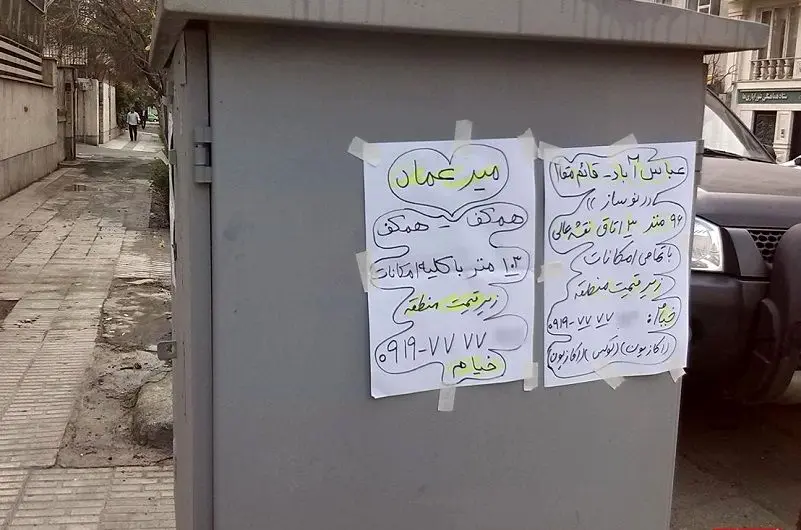 میرعماد
همکف - همکف
۱۰۳ متر با کلیه امکانات
زیر قیمت منطقه
۰۹۱۹-۷۷ ۷۷
خیام
عباس آباد - قائم مقام
« در نوساز »
۹۶ متر ۳ اتاق نقشه عالی
با تمامی امکانات
زیر قیمت منطقه
خیام: ۰۹۱۹-۷۷ ۷۷
(اکازیون) (لوکس) (اکازیون)
ستاد هماهنگی شورایاری‌ها